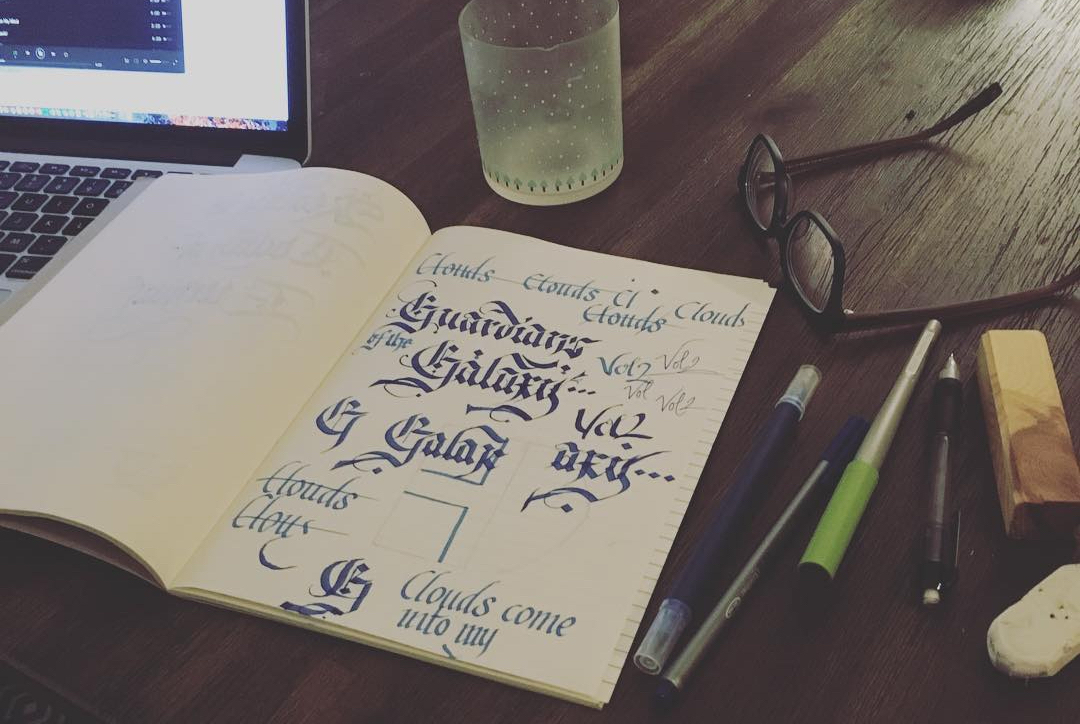 Clouds Clouds Cl Clouds
Clouds
Guardians
of the
Galaxy... Vol 2 Vol 2
Vol Vol 2
Vol 2
G Galax axy...
Clouds
Clou
G Clouds come
into my